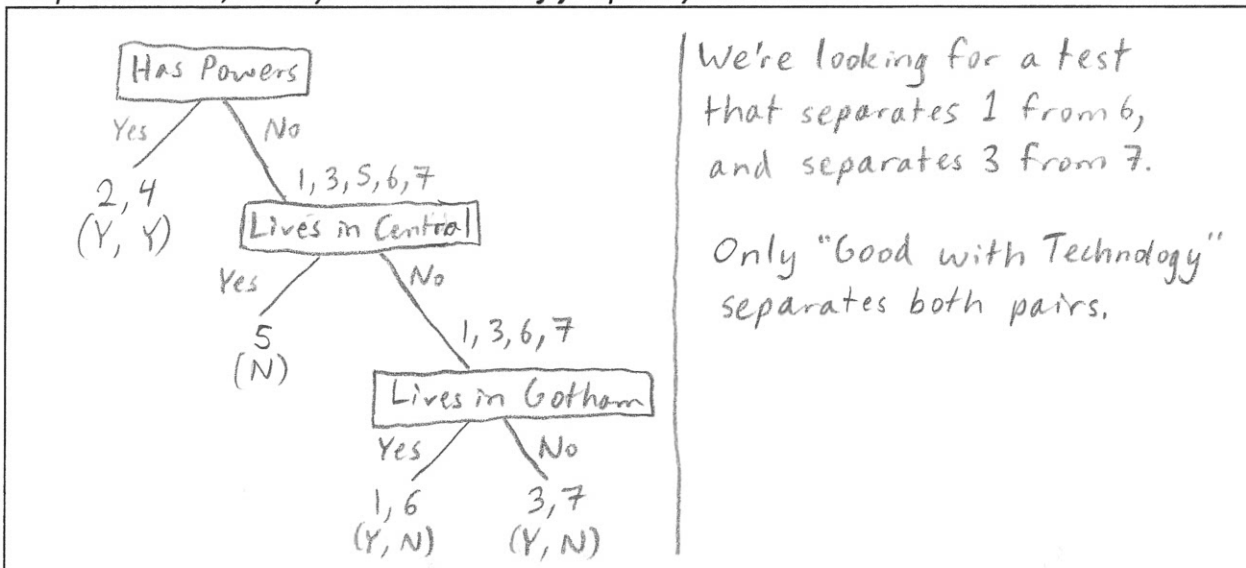 Has Powers
Yes No
2, 4
(Y, Y)
1, 3, 5, 6, 7
Lives in Central
Yes No
5
(N)
1, 3, 6, 7
Lives in Gotham
Yes No
1, 6 3, 7
(Y, N) (Y, N)
We're looking for a test
that separates 1 from 6,
and separates 3 from 7.
Only "Good with Technology"
separates both pairs.